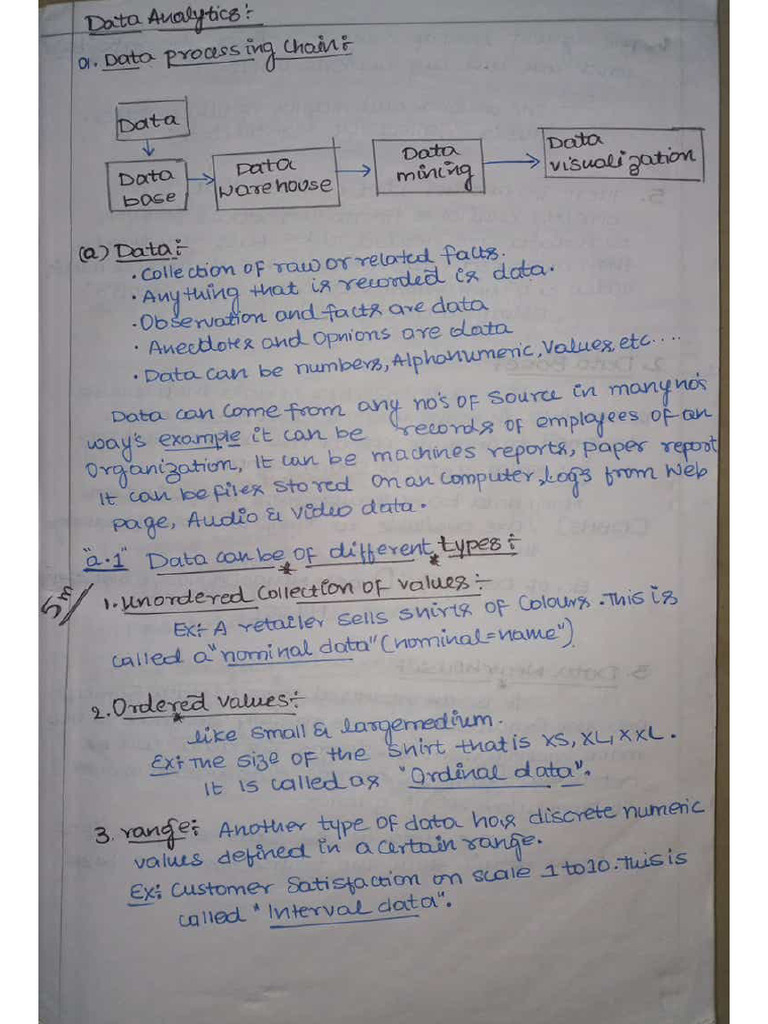 Data Analytics:-
01. Data processing chain:-
Data
Data base
Data warehouse
Data mining
Data visualization
(a) Data:-
• Collection of raw or related facts.
• Anything that is recorded is data.
• Observation and facts are data
• Anecdotes and Opnions are data
• Data can be numbers, Alphanumeric, Values, etc....
Data can come from any no's of source in many no's
way's example it can be records of employees of an
Organization, It can be machines reports, paper report
It can be files stored on an computer, Logs from Web
page, Audio & Video data.
"a.1" Data can be of different types:-
5m/
1. Unordered Collection of values:-
Ex:- A retailer sells shirts of Colours. This is
called a "nominal data" (nominal=name")
2. Ordered values:-
like small & largemedium.
Ex:- The size of the shirt that is XS, XL, XXL.
It is called as "Ordinal data".
3. range:- Another type of data has discrete numeric
values defined in a certain range.
Ex:- Customer Satisfaction on scale 1 to 10. This is
called "Interval data".